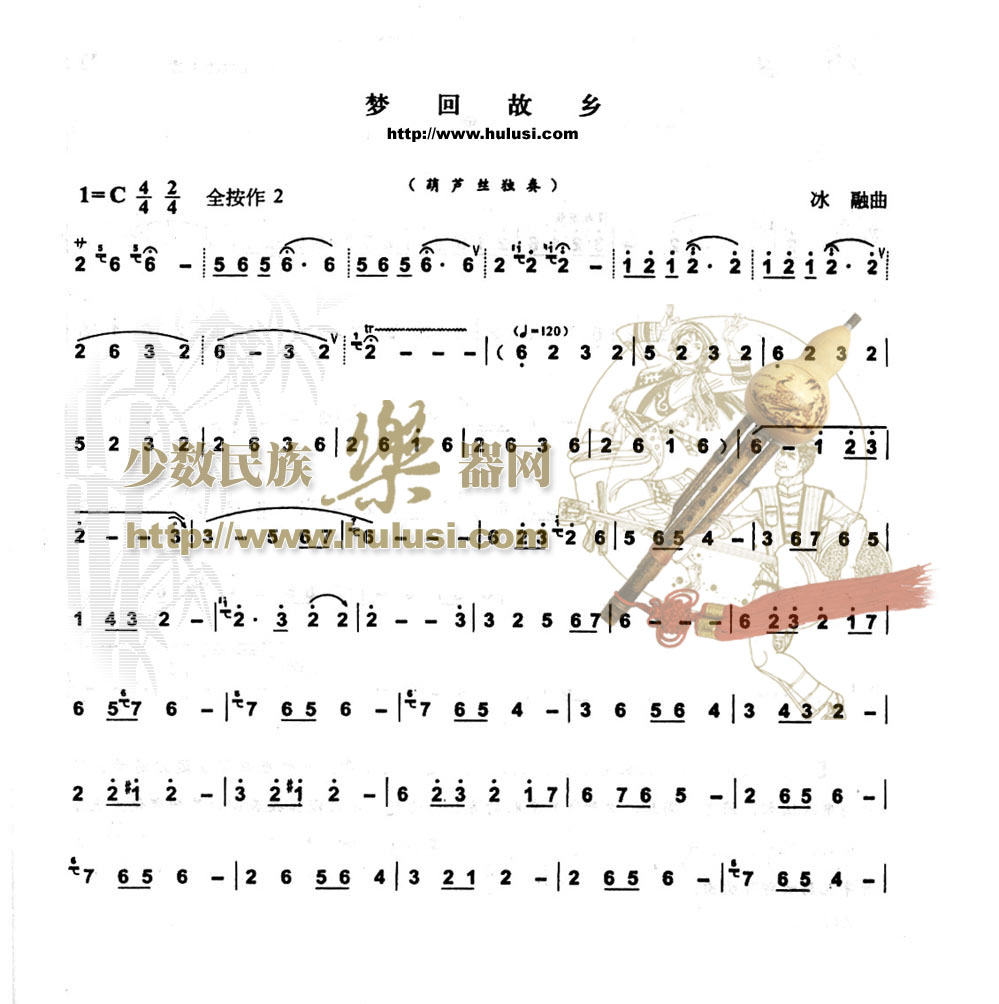 梦 回 故 乡
http://www.hulusi.com
（葫芦丝独奏）
1=C 4/4 2/4 全按作 2 冰 融曲
サ 2 5 6 5 6 – ┊ 5 6 5 6 · 6 ┊ 5 6 5 6 · 6 V ┊ 2 2 2 – ┊ 1 2 1 2 · 2 ┊ 1 2 1 2 · 2 V
2 6 3 2 ┊ 6 – 3 2 V ┊ 1 tr 2 – – – | ( (♩=120) 6 2 3 2 | 5 2 3 2 | 6 2 3 2 |
5 2 3 2 | 2 6 3 6 | 2 6 1 6 | 2 6 3 6 | 2 6 1 6 ) | 6 – 1 2 3 |
少数民族樂器网
2 – – 3 | 3 – 5 6 7 | 7 6 – – – | 6 2 3 2 6 | 5 6 5 4 – | 3 6 7 6 5 |
http://www.hulusi.com
1 4 3 2 – | 2 · 3 2 2 | 2 – – 3 | 3 2 5 6 7 | 6 – – – | 6 2 3 2 1 7 |
6 5 6 7 6 – | 6 7 6 5 6 – | 6 7 6 5 4 – | 3 6 5 6 4 | 3 4 3 2 – |
2 2 #1 2 – | 3 2 #1 2 – | 6 2 3 2 1 7 | 6 7 6 5 – | 2 6 5 6 – |
6 7 6 5 6 – | 2 6 5 6 4 | 3 2 1 2 – | 2 6 5 6 – | 6 7 6 5 4 – |